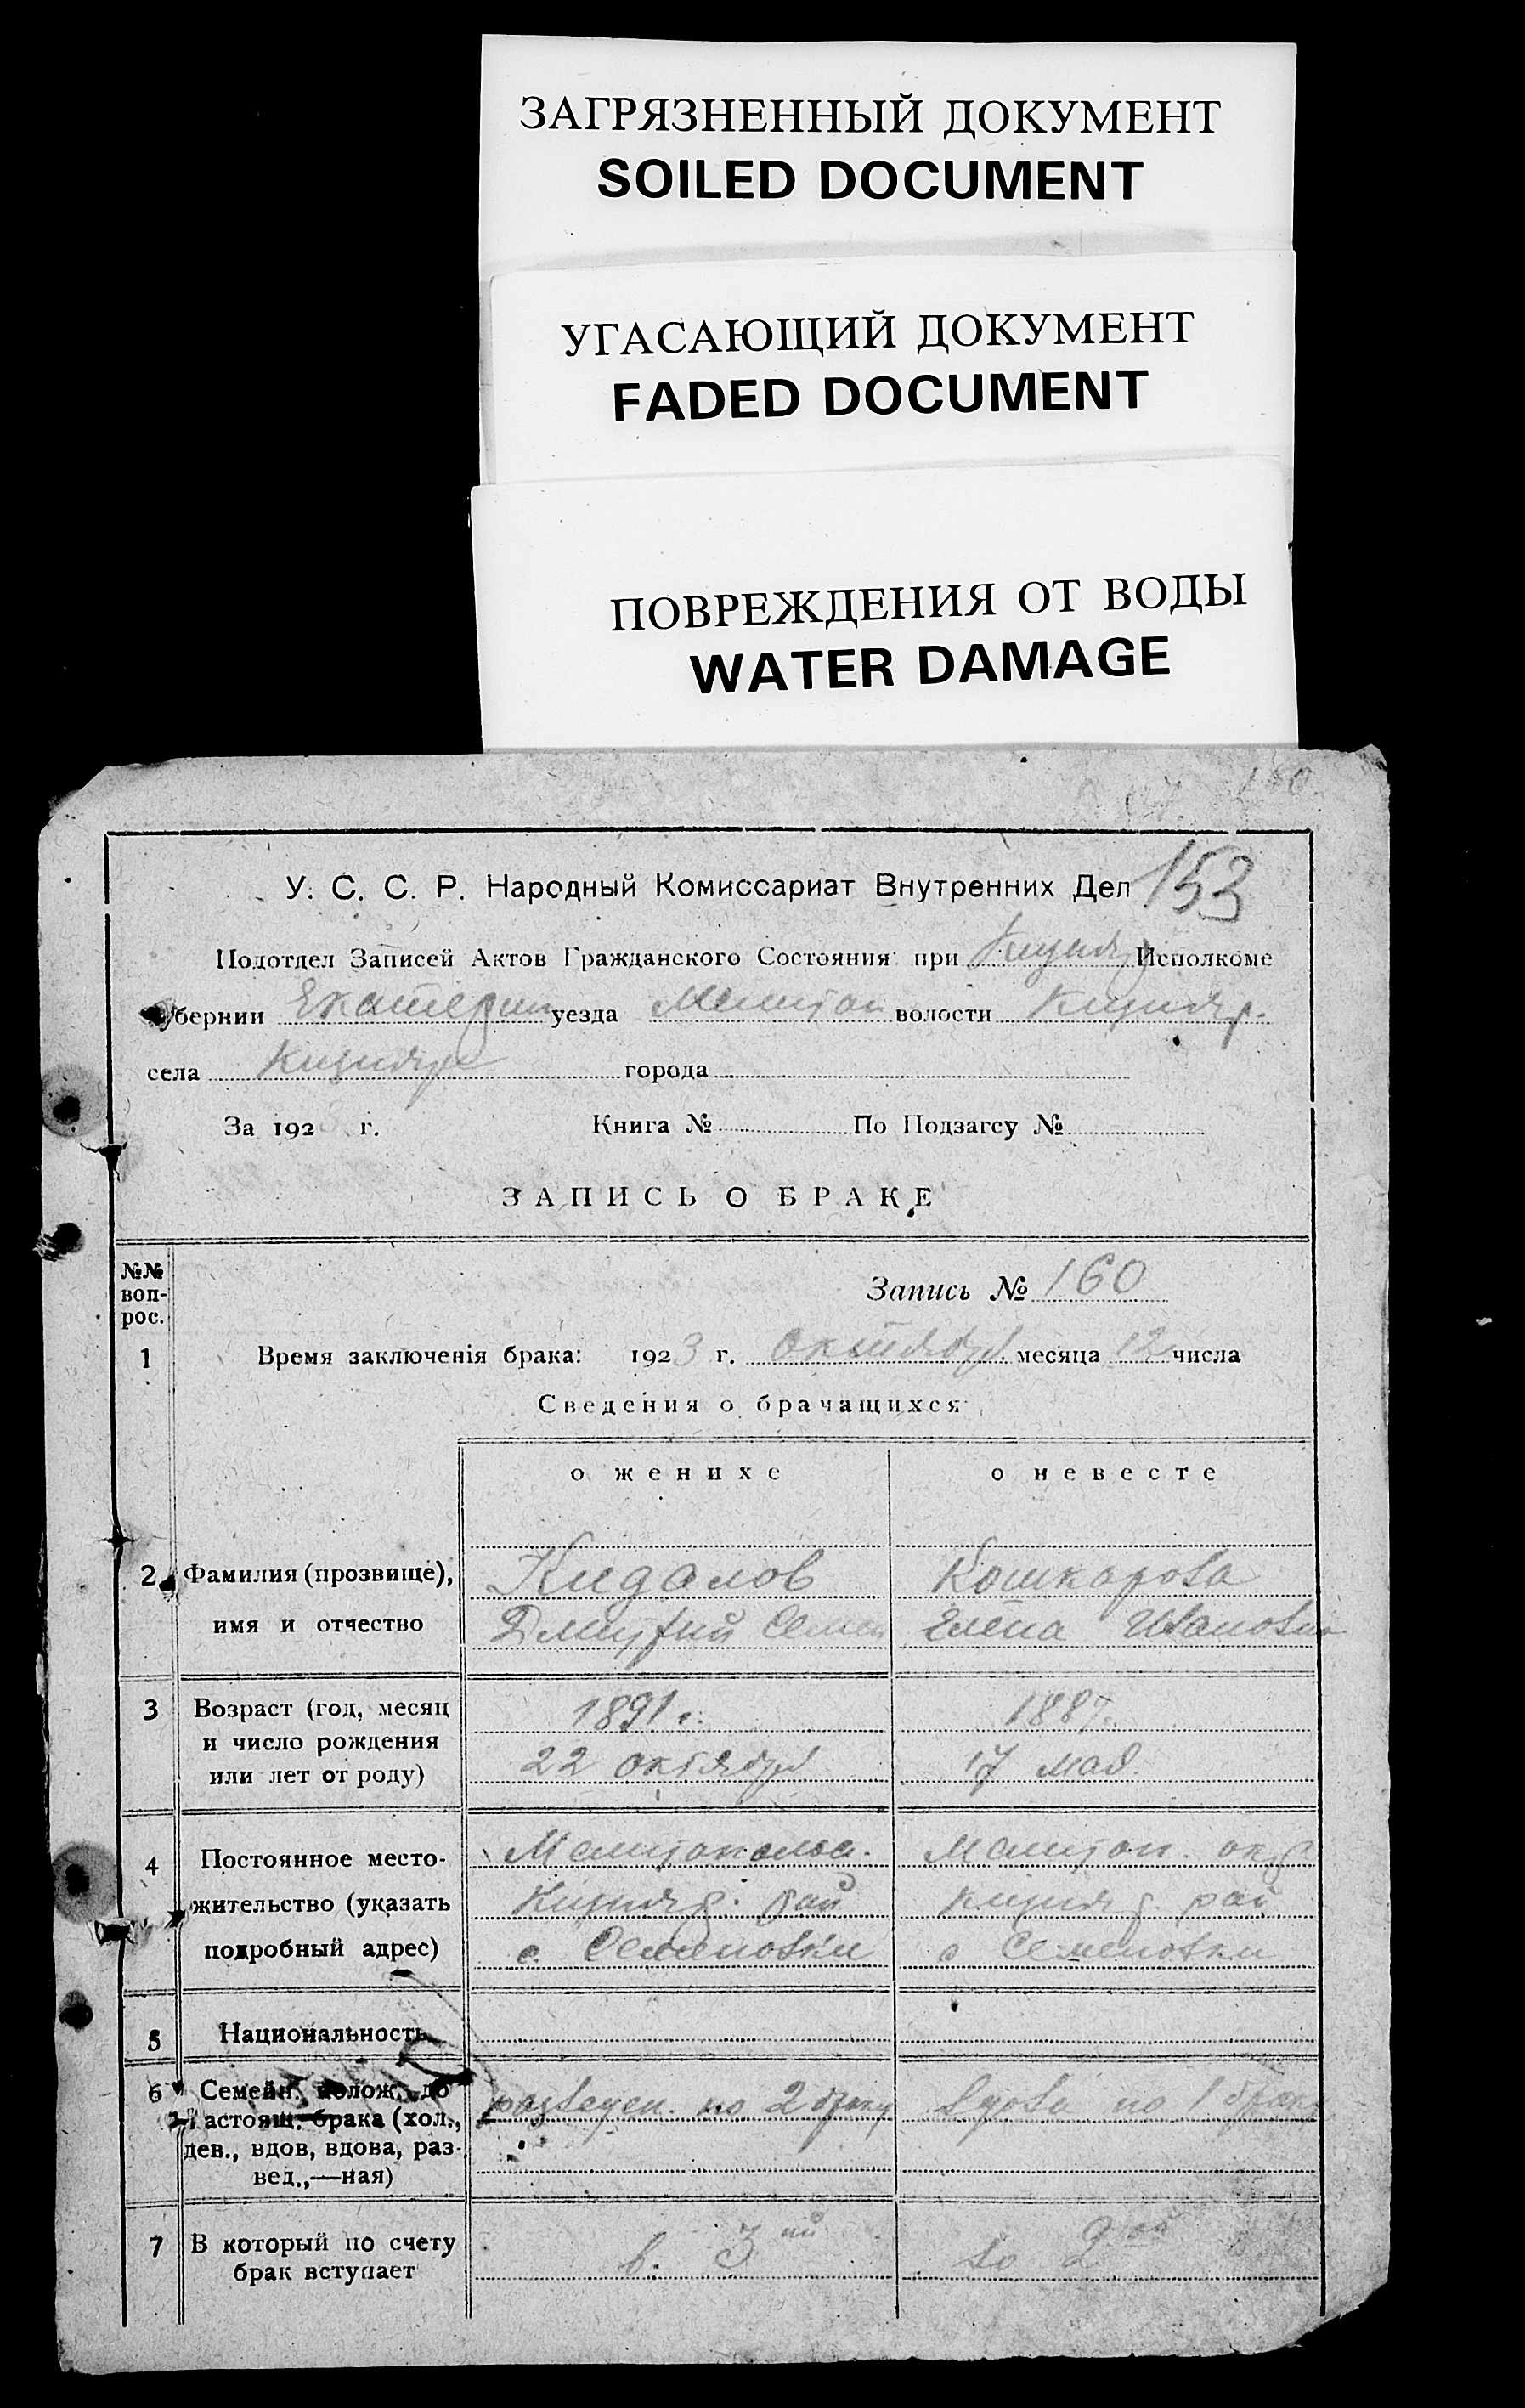 ЗАГРЯЗНЕННЫЙ ДОКУМЕНТ
SOILED DOCUMENT
УГАСАЮЩИЙ ДОКУМЕНТ
FADED DOCUMENT
ПОВРЕЖДЕНИЯ ОТ ВОДЫ
WATER DAMAGE
153
У. С. С. Р. Народный Комиссариат Внутренних Дел
Подотдел Записей Актов Гражданского Состояния при Кизияр Исполкоме
губернии Екатерин уезда Мелитоп волости Кизияр.
села Кизияр города
За 192 г. Книга № По Подзагсу №
ЗАПИСЬ О БРАКЕ
№№ воп-рос.
Запись № 160
1 Время заключенія брака: 1923 г. октября месяца 12 числа
Сведения о брачащихся
о женихе о невесте
2 Фамилия (прозвище), Кидалов Кошкарова
имя и отчество Дмитрий Семен Елена Ивановна
3 Возраст (год, месяц 1891 г. 1887 г.
и число рождения 22 октября 17 мая
или лет от роду)
4 Постоянное место- Мелитопольск. Мелитоп. окр
жительство (указать Кизияр. рай Кизияр. рай
подробный адрес) с. Семеновки с Семеновки
5 Национальность
6 Семейн. полож. до разведен. по 2 браку вдова по 1 браку
настоящ. брака (хол.,
дев., вдов, вдова, раз-
вед.,—ная)
7 В который по счету в. 3 ий во 2 ой
брак вступает